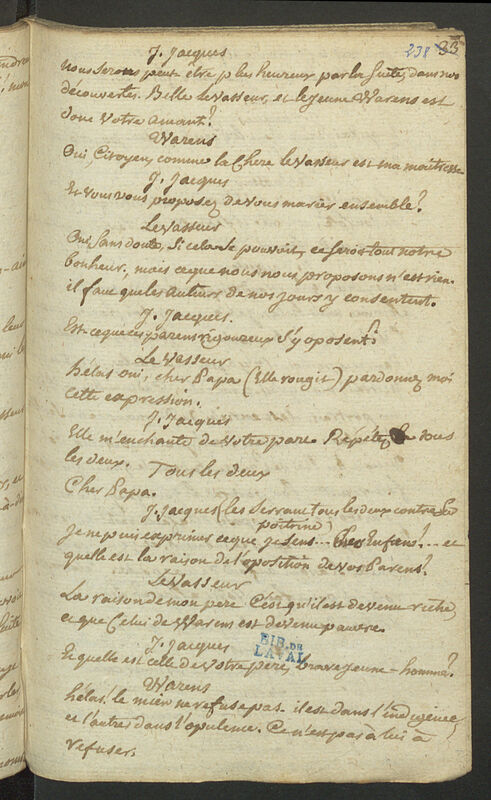 238 33
J. Jacques
nous serons peut etre plus heureux par la suite, dans nos
decouvertes. Belle levasseur, et le jeune Warens est
donc votre amant?
Warens
Oui, Citoyen, comme la chere levasseur est ma maitresse
J. Jacques
Et vous vous proposez de vous marier ensemble?
Levasseur
Oui, sans doute, si cela se pouvoit, ce seroit tout notre
bonheur, mais ce que nous nous proposons n'est rien.
il faut que les auteurs de nos jours y consentent.
J. Jacques.
Est-ce que ces parens rigoureux s'y oposent?
Le Vasseur
hélas oui, cher Papa (Elle rougit) pardonnez moi
cette expression.
J. Jacques
Elle m'enchante de votre part. Répétez la tous
les deux.
Tous les deux
Cher Papa.
J. Jacques (les serrant tous les deux contre sa
poitrine)
je ne puis exprimer ce que je sens... Enfans!... et
quelle est la raison de l'oposition de vos Parens?
Levasseur
La raison de mon pere C'est qu'il est devenu riche,
et que Celui de Warens est devenu pauvre.
J. Jacques
Et quelle est celle de votre pere, brave jeune-homme?
BIB. DE
LAVAL
Warens
hélas! le mien ne refuse pas. il est dans l'indigence,
et l'autre dans l'opulence. Ce n'est pas à lui à
refuser.